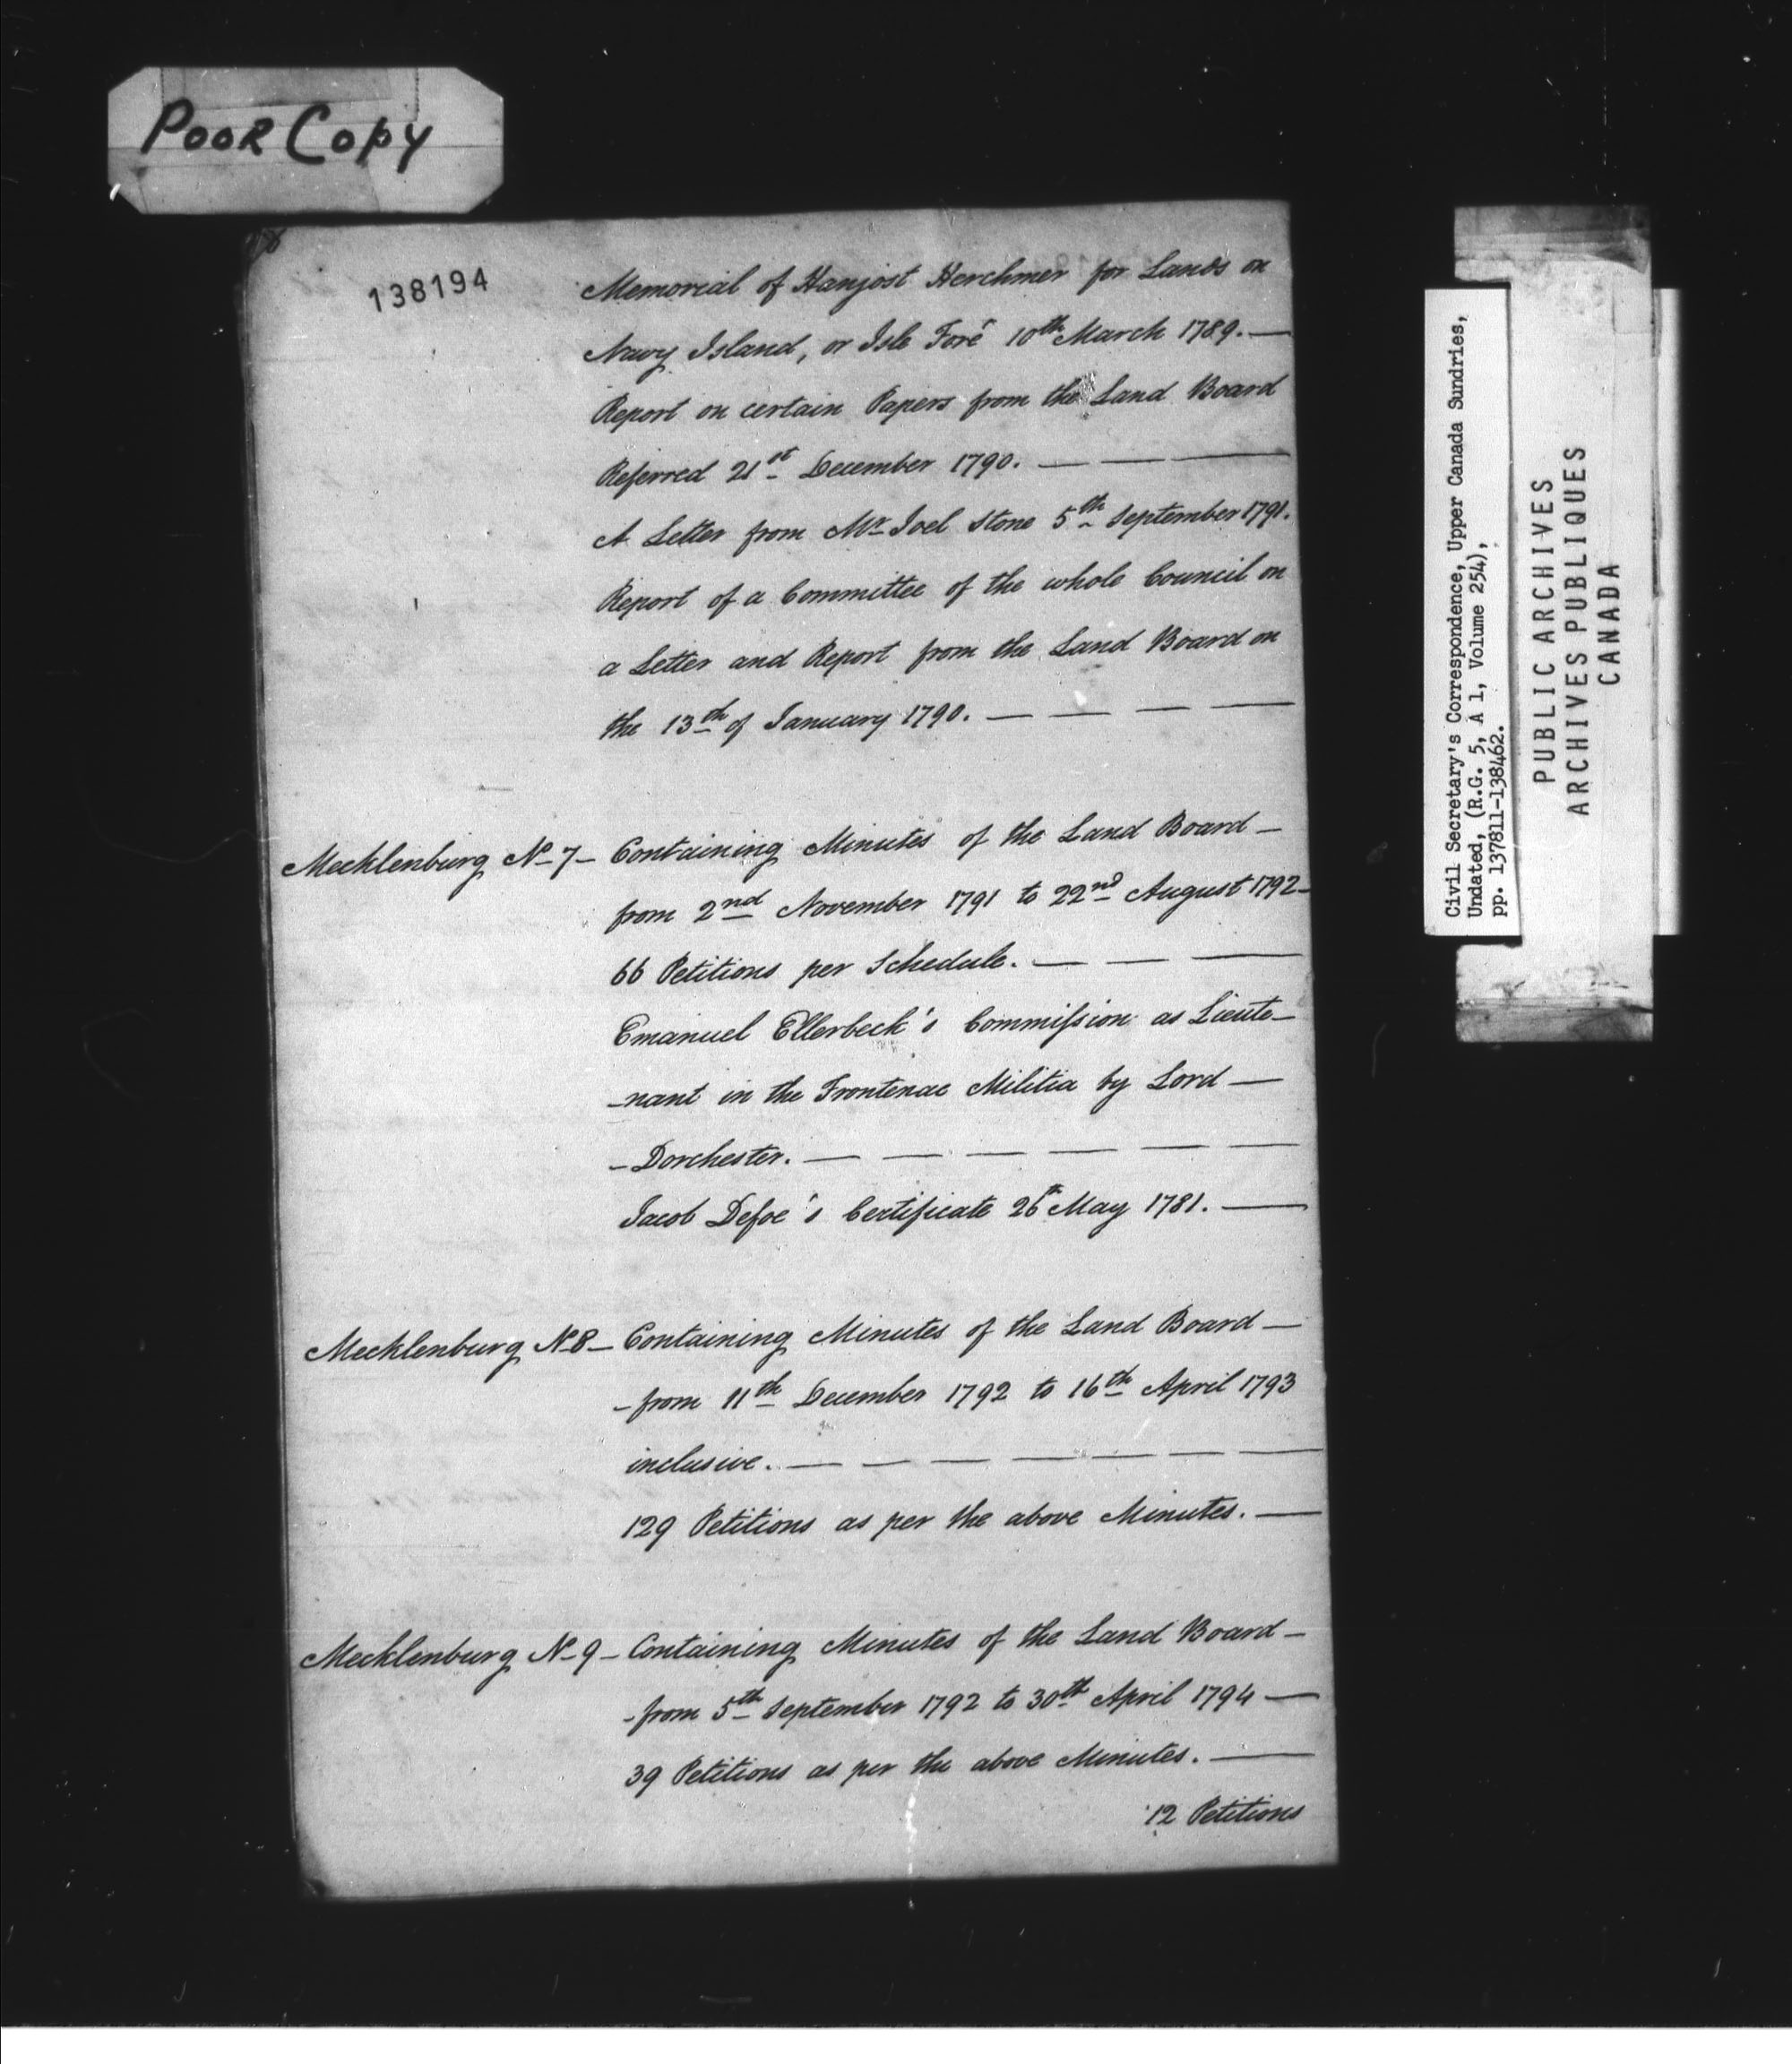 Poor Copy
138194
Memorial of Hanjost Herchmer for Lands on
Navy Island, or Isle Foré 10th March 1789. —
Report on certain Papers from the Land Board
Referred 21st December 1790. — — —
A Letter from Mr Joel Stone 5th September 1791.
Report of a Committee of the whole Council on
a Letter and Report from the Land Board on
the 13th of January 1790. — — — —
Mecklenburg No 7 — Containing Minutes of the Land Board —
from 2nd November 1791 to 22nd August 1792 —
66 Petitions per Schedule. — — —
Emanuel Ellerbeck's Commission as Lieute-
-nant in the Frontenac Militia by Lord —
- Dorchester. — — — — — —
Jacob Defoe's Certificate 26th May 1781. —
Mecklenburg No 8 — Containing Minutes of the Land Board —
- from 11th December 1792 to 16th April 1793
inclusive. — — — — — — —
129 Petitions as per the above Minutes. —
Mecklenburg No 9 — Containing Minutes of the Land Board —
- from 5th September 1792 to 30th April 1794 —
39 Petitions as per the above Minutes. —
12 Petitions
Civil Secretary's Correspondence, Upper Canada Sundries,
Undated, (R.G. 5, A 1, Volume 254),
pp. 137811-138462.
PUBLIC ARCHIVES
ARCHIVES PUBLIQUES
CANADA